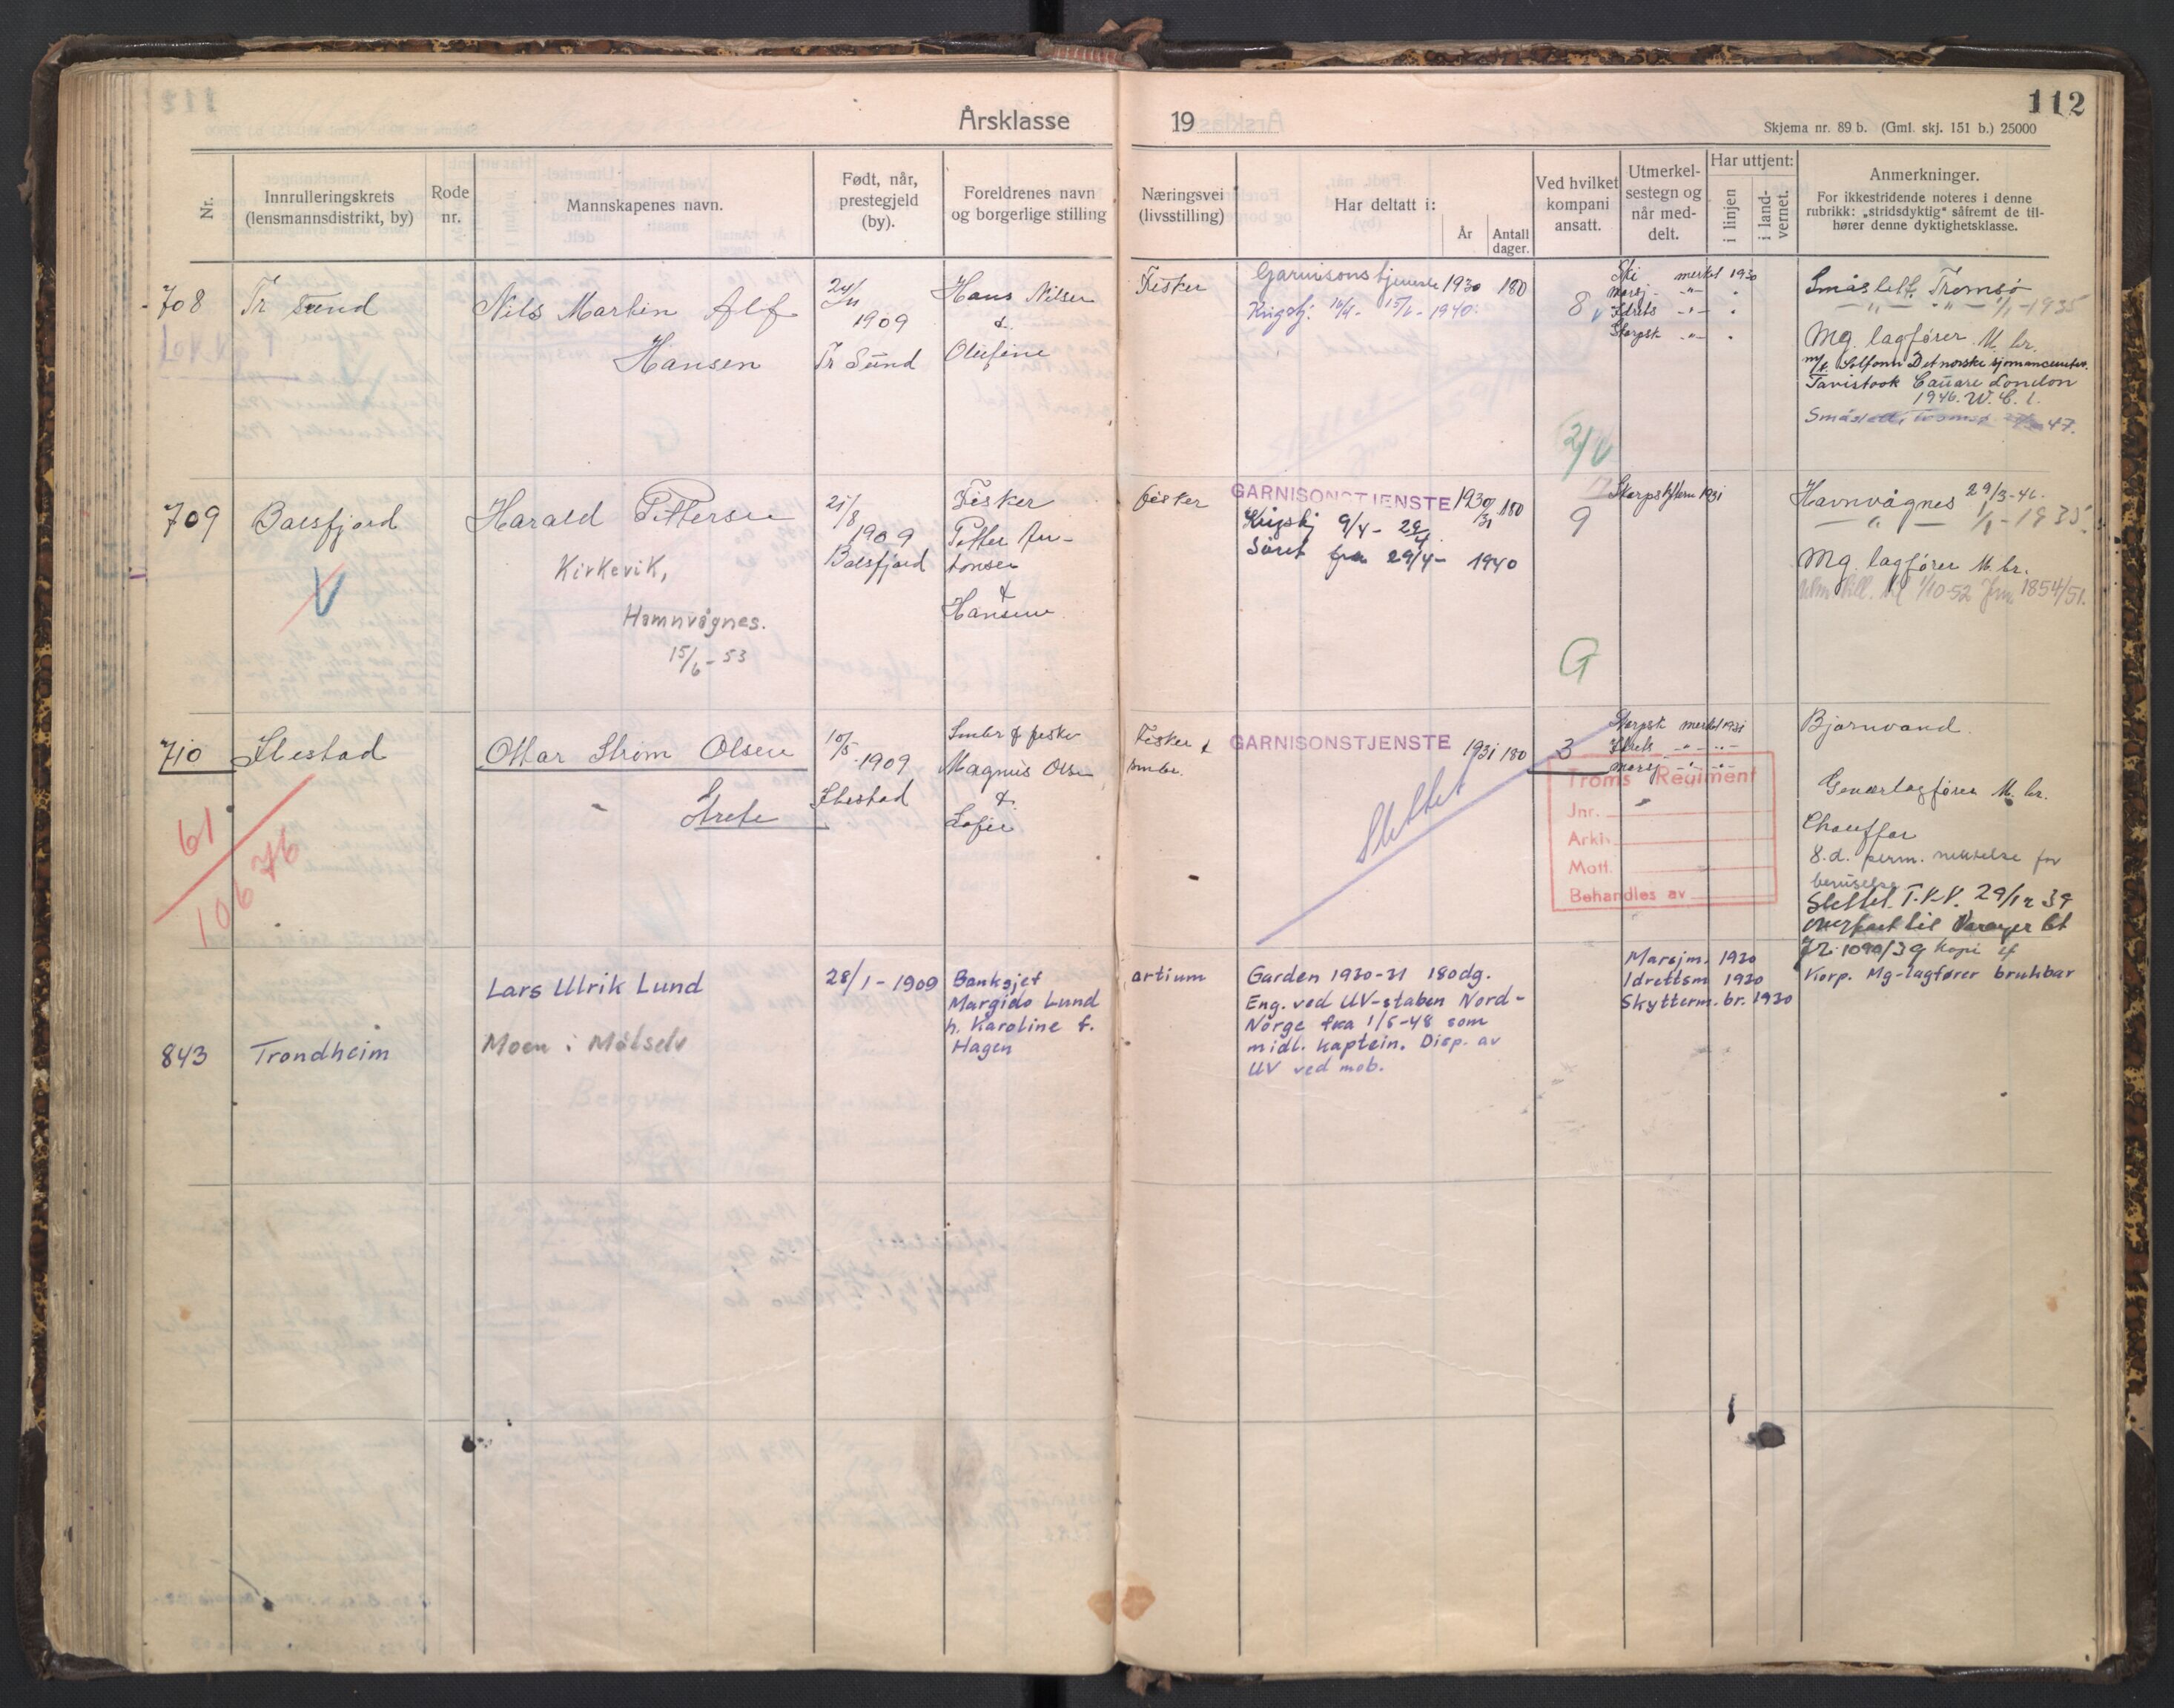 Årsklasse
19
112
Skjema nr. 89 b. (Gml. skj. 151 b.) 25000
Nr.
Innrulleringskrets
(lensmannsdistrikt, by)
Rode
nr.
Mannskapenes navn.
Født, når,
prestegjeld
(by).
Foreldrenes navn
og borgerlige stilling
Næringsvei
(livsstilling)
Har deltatt i:
År
Antall
dager.
Ved hvilket
kompani
ansatt.
Utmerkel-
sestegn og
når med-
delt.
Har uttjent:
i linjen
i land-
vernet.
Anmerkninger.
For ikkestridende noteres i denne
rubrikk: „stridsdyktig" såfremt de til-
hører denne dyktighetsklasse.
708
Tr sund
Nils Martin Alf
Hansen
24/11
1909
Tr Sund
Hans Nilsen
&
Olufine
Fisker
Garnisonstjeneste 1930 180
Krigstj. 1940.
8
Ski merket 1930
Marsj - " -
Idrets - " -
Skarpsk - " -
Småslett, Tromsø
- " - " - 1/1 - 1935
Mg. lagfører M. br.
Det norske
Tavistock London
1946. W. C. 1.
47.
709
Balsfjord
Harald Pettersen
Kirkevik,
Hamnvågnes.
15/6 - 53
21/8
1909
Balsfjord
Fisker
Petter An-
tonsen
&
Hansine
fisker
GARNISONSTJENSTE 1930/31 180
Krigstj 9/4 - 29/4
Såret fra 29/4 - 1940
9
G
1931
Havnvågnes 29/3-46.
- " - 1/1 - 1935.
Mg. lagfører M. br.
1/10-52 1854/51.
710
Ibestad
61
106 76
Ottar Strøm Olsen
Strete
10/5
1909
Ibestad
Smbr & fisker
Magnus Olsen
&
Sofie
Fisker &
smbr.
GARNISONSTJENSTE 1931 180
Slettet
3
Skarpsk merket 1931
Idrets - " -
Marsj - " -
Troms Regiment
Jnr.
Arkiv
Mott.
Behandles av
Bjørnvand
Geværlagfører M. br.
Chauffør
8. d. perm. nektelse for
beruselse
Slettet. T.V.V. 29/12 39
overført til Varanger bt
Jr. 1090/39 kopi
843
Trondheim
Lars Ulrik Lund
Moen i Målselv
28/1 - 1909
Banksjef
Margido Lund
h. Karoline f.
Hagen
artium
Garden 1930-31 180dg.
Eng. ved UV-staben Nord-
Norge fra 1/5-48 som
midl. kaptein. Disp. av
UV ved mob.
Marsjm. 1930
Idrettsm 1930
Skytterm. br. 1930
Korp. Mg-lagfører brukbar